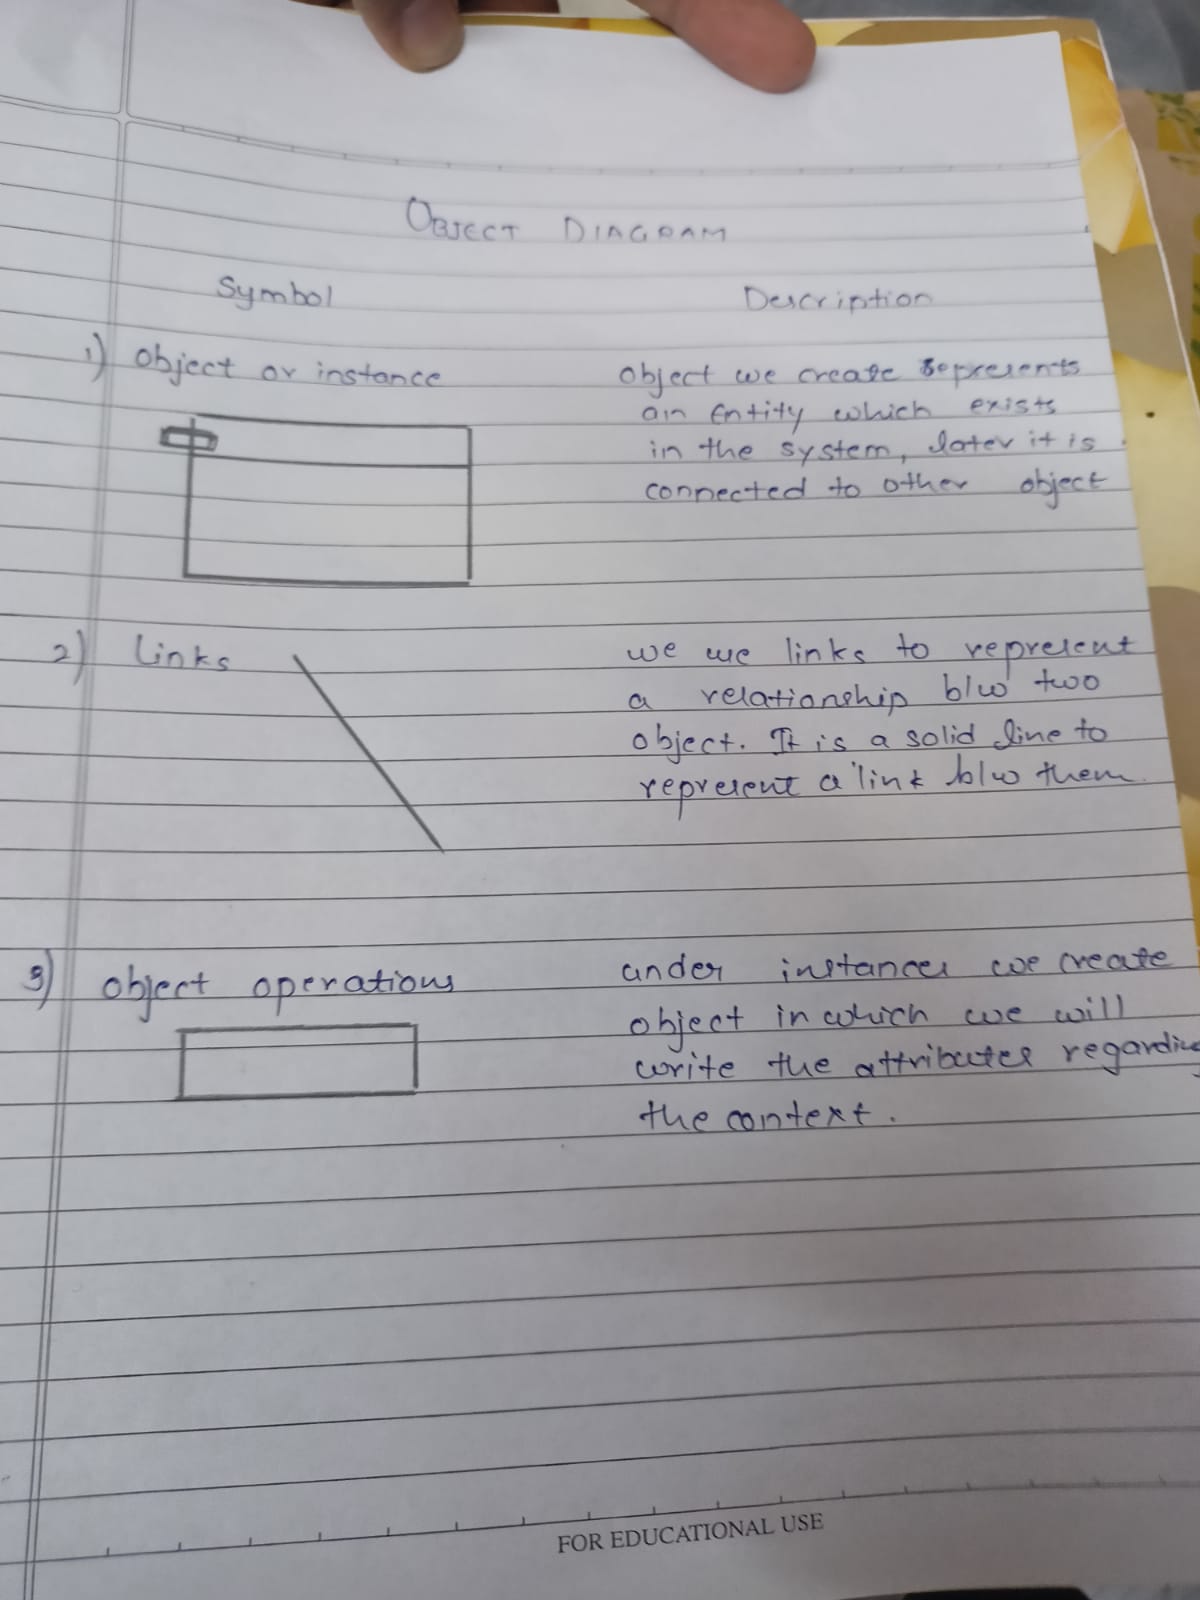 OBJECT DIAGRAM
Symbol Description
1) object or instance
object we create represents
an Entity which exists
in the system, later it is
connected to other object
2) Links
we use links to represent
a relationship b/w two
object. It is a solid line to
represent a link b/w them.
3) object operations
under instances we create
object in which we will
write the attributes regarding
the context.
FOR EDUCATIONAL USE